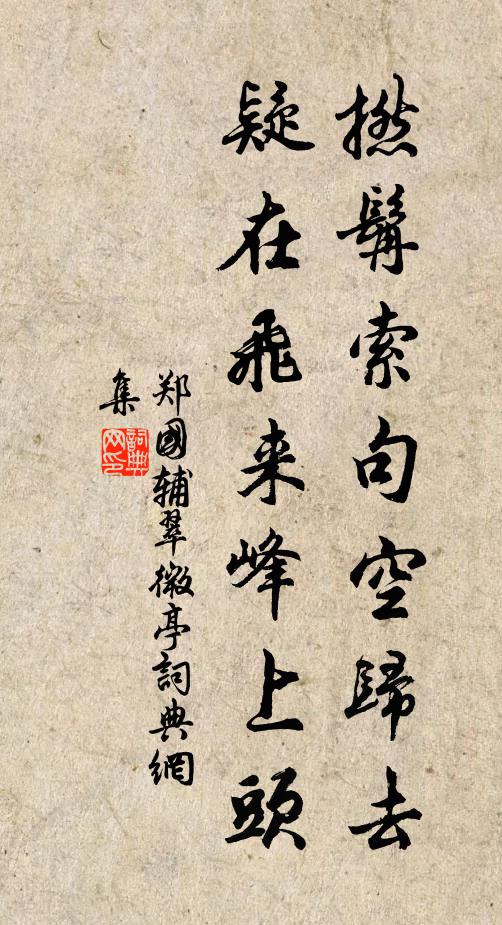 撚髯索句空歸去
疑在飛来峰上頭
郑國輔翠微亭詞典網
集
詞典
网印